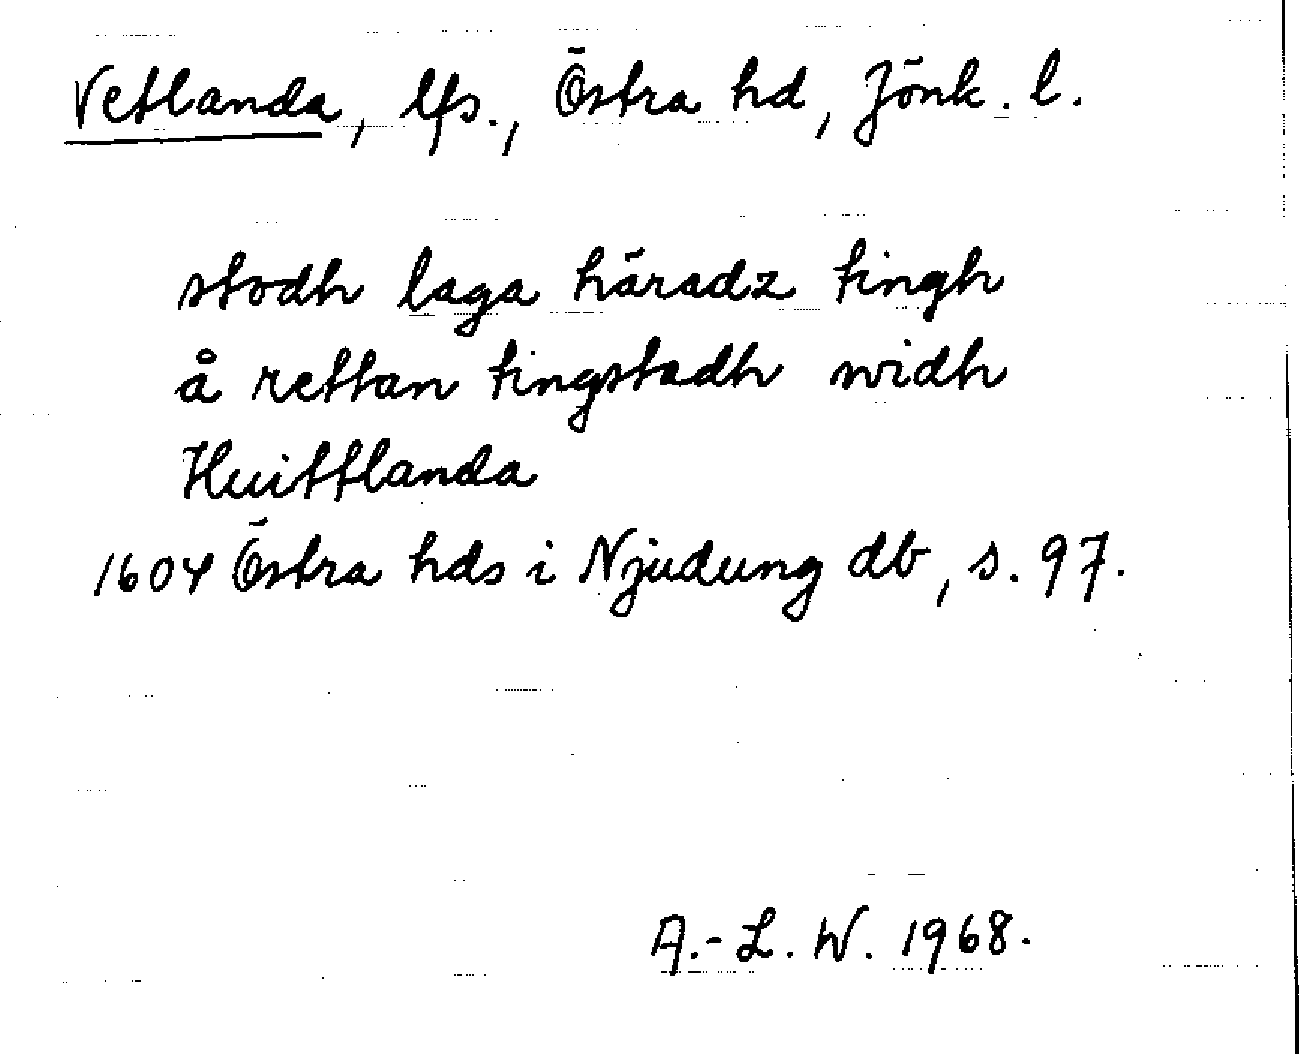 Vetlanda, lfs., Östra hd, Jönk. l.
stodh laga häradz tingh
å rettan tingstadh widh
Huittlanda
1604 Östra hds i Njudung db, s. 97.
A.-L. W. 1968.